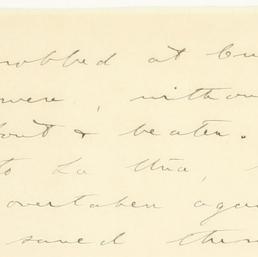 robbed at
were, without
& beaten.
to La Uña,
overtaken again
saved them